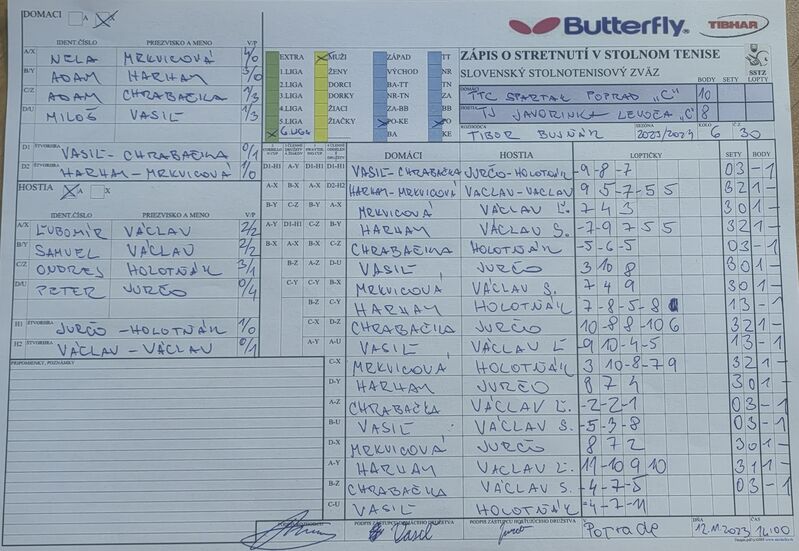 DOMÁCI A X
Butterfly
TIBHAR
IDENT.ČÍSLO PRIEZVISKO A MENO V/P
A/X NELA MRKVICOVÁ 4/0
B/Y ADAM HARHAM 3/0
C/Z ADAM CHRABAČKA 1/3
D/U MILOŠ VASIĽ 1/3
D1 ŠTVORHRA VASIĽ-CHRABAČKA 0/1
D2 ŠTVORHRA HARHAM-MRKVICOVÁ 1/0
HOSTIA A X
IDENT.ČÍSLO PRIEZVISKO A MENO V/P
A/X ĽUBOMÍR VÁCLAV 2/2
B/Y SAMUEL VÁCLAV 2/2
C/Z ONDREJ HOLOTŇÁK 3/1
D/U PETER JURČO 0/4
H1 ŠTVORHRA JURČO-HOLOTŇÁK 1/0
H2 ŠTVORHRA VÁCLAV-VÁCLAV 0/1
PRIPOMIENKY, POZNÁMKY
EXTRA MUŽI ZÁPAD TT
1.LIGA ŽENY VÝCHOD NR
2.LIGA DORCI BA-TT TN
3.LIGA DORKY NR-TN ZA
4.LIGA ŽIACI ZA-BB BB
5.LIGA ŽIAČKY PO-KE PO
6.LIGA BA KE
ZÁPIS O STRETNUTÍ V STOLNOM TENISE
SLOVENSKÝ STOLNOTENISOVÝ ZVÄZ
SSTZ
BODY SETY LOPTY
DOMÁCI TTC SPARTAK POPRAD "C" 10
HOSTIA TJ JAVORINKA LEVOČA "C" 8
ROZHODCA TIBOR BUJŇÁK SEZÓNA 2023/2024 KOLO 6 Č.Z. 30
DOMÁCI HOSTIA LOPTIČKY SETY BODY
D1-H1 D1-H1 VASIĽ-CHRABAČKA JURČO-HOLOTŇÁK -9 -8 -7 03 -1
A-X B-X A-X D2-H2 HARHAM-MRKVICOVÁ VÁCLAV-VÁCLAV 9 5 -7 -5 5 32 1-
B-Y C-Z B-Y MRKVICOVÁ VÁCLAV Ľ. 7 4 3 30 1-
A-Y D1-H1 C-Z HARHAM VÁCLAV S. -7 -9 7 5 5 32 1-
B-X A-X C-Z CHRABAČKA HOLOTŇÁK -5 -6 -5 03 -1
B-Z A-Z D-U VASIĽ JURČO 3 10 8 30 1-
C-Y C-Y B-X MRKVICOVÁ VÁCLAV S. 7 4 9 30 1-
B-Z C-Y HARHAM HOLOTŇÁK 7 -8 -5 -8 13 -1
C-X D-Z CHRABAČKA JURČO 10 -8 8 -10 6 32 1-
A-Y A-U VASIĽ VÁCLAV Ľ 9 10 -4 -5 13 -1
C-X MRKVICOVÁ HOLOTŇÁK 3 10 -8 -7 9 32 1-
D-Y HARHAM JURČO 8 7 4 30 1-
A-Z CHRABAČKA VÁCLAV Ľ. -2 -2 -1 03 -1
B-U VASIĽ VÁCLAV S. -5 -3 -8 03 -1
D-X MRKVICOVÁ JURČO 8 7 2 30 1-
A-Y HARHAM VÁCLAV Ľ. 11 -10 9 10 31 1-
B-Z CHRABAČKA VÁCLAV S. -4 -7 -5 03 -1
C-U VASIĽ HOLOTŇÁK -4 -7 -11
PODPIS ZÁSTUPCU DOMÁCEHO DRUŽSTVA PODPIS ZÁSTUPCU HOSŤUJÚCEHO DRUŽSTVA
Vasiľ V Poprade DŇA 12.11.2023 14:00